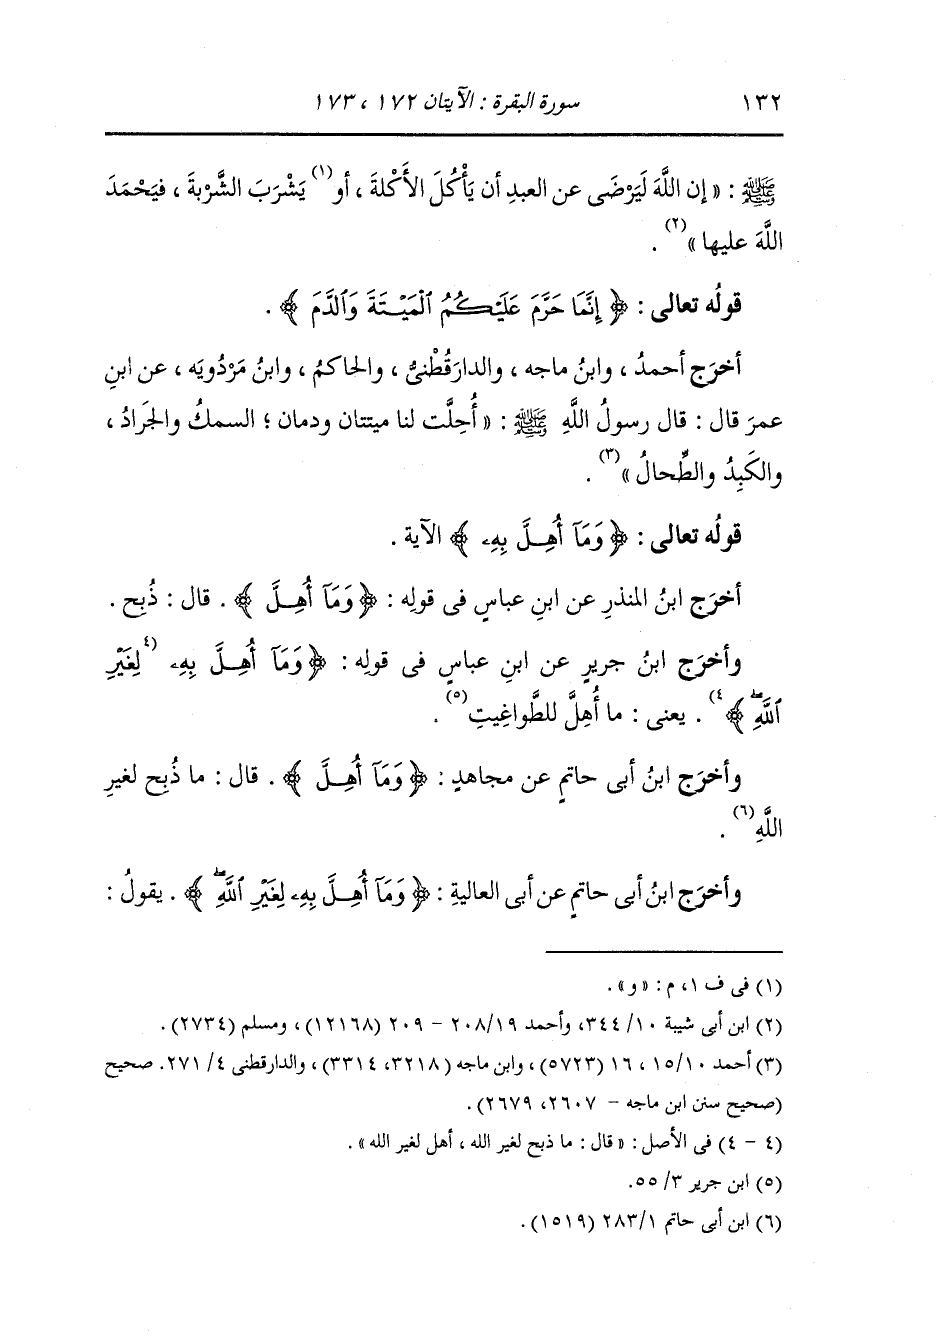 ١٣٢ سورة البقرة : الآيتان ١٧٢ ، ١٧٣
ﷺ : « إن اللَّهَ لَيَرْضَى عن العبدِ أن يَأْكُلَ الأَكْلةَ ، أو(١) يَشْرَبَ الشَّرْبةَ ، فيَحْمَدَ
اللَّهَ عليها »(٢) .
قولُه تعالى : ﴿ إِنَّمَا حَرَّمَ عَلَيْكُمُ ٱلْمَيْتَةَ وَٱلدَّمَ ﴾ .
أخرَج أحمدُ ، وابنُ ماجه ، والدارَقُطْنيُّ ، والحاكمُ ، وابنُ مَرْدُويَه ، عن ابنِ
عمرَ قال : قال رسولُ اللَّهِ ﷺ : « أُحِلَّت لنا ميتتان ودمان ؛ السمكُ والجَرادُ ،
والكَبِدُ والطِّحالُ »(٣) .
قولُه تعالى : ﴿ وَمَآ أُهِلَّ بِهِۦ ﴾ الآية .
أخرَج ابنُ المنذرِ عن ابنِ عباسٍ فى قولِه : ﴿ وَمَآ أُهِلَّ ﴾ . قال : ذُبِح .
وأخرَج ابنُ جريرٍ عن ابنِ عباسٍ فى قولِه : ﴿ وَمَآ أُهِلَّ بِهِۦ (٤لِغَيْرِ
ٱللَّهِۖ ﴾٤) . يعنى : ما أُهِلَّ للطَّواغِيتِ(٥) .
وأخرَج ابنُ أبى حاتمٍ عن مجاهدٍ : ﴿ وَمَآ أُهِلَّ ﴾ . قال : ما ذُبِح لغيرِ
اللَّهِ(٦) .
وأخرَج ابنُ أبى حاتمٍ عن أبى العاليةِ : ﴿ وَمَآ أُهِلَّ بِهِۦ لِغَيْرِ ٱللَّهِۖ ﴾ . يقولُ :
(١) فى ف ١، م : « و» .
(٢) ابن أبى شيبة ١٠/ ٣٤٤، وأحمد ٢٠٨/١٩ – ٢٠٩ (١٢١٦٨) ، ومسلم (٢٧٣٤) .
(٣) أحمد ١٥/١٠ ، ١٦ (٥٧٢٣) ، وابن ماجه (٣٢١٨، ٣٣١٤) ، والدارقطنى ٤/ ٢٧١. صحيح
(صحيح سنن ابن ماجه – ٢٦٠٧، ٢٦٧٩) .
(٤ – ٤) فى الأصل : « قال : ما ذبح لغير الله ، أهل لغير الله» .
(٥) ابن جرير ٣/ ٥٥.
(٦) ابن أبى حاتم ٢٨٣/١ (١٥١٩) .